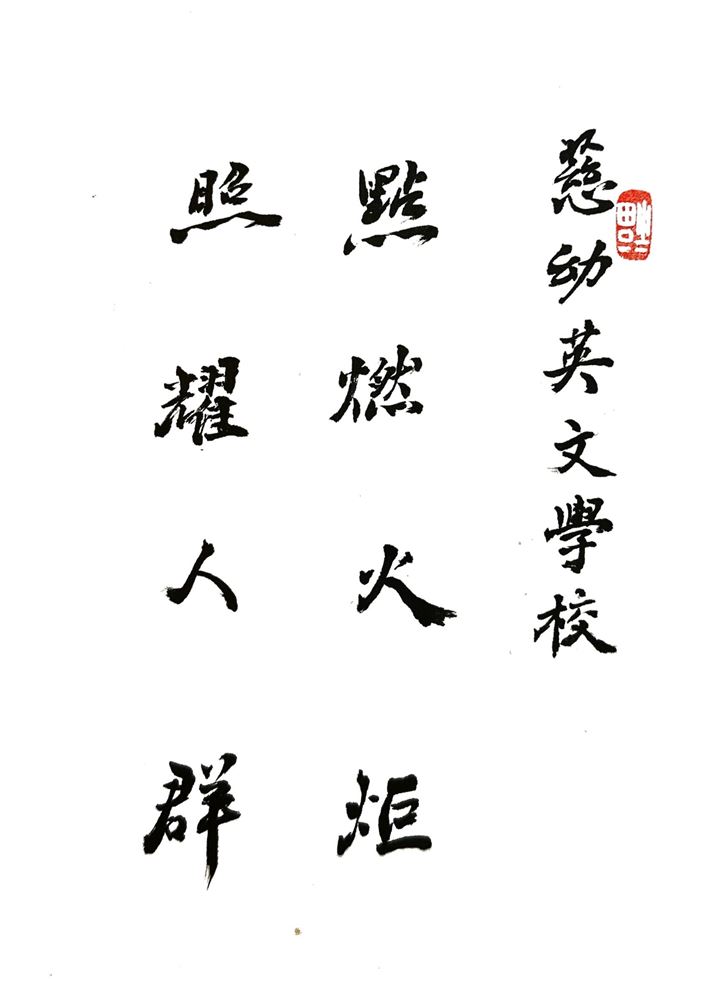 慈幼英文學校
點燃火炬
照耀人群